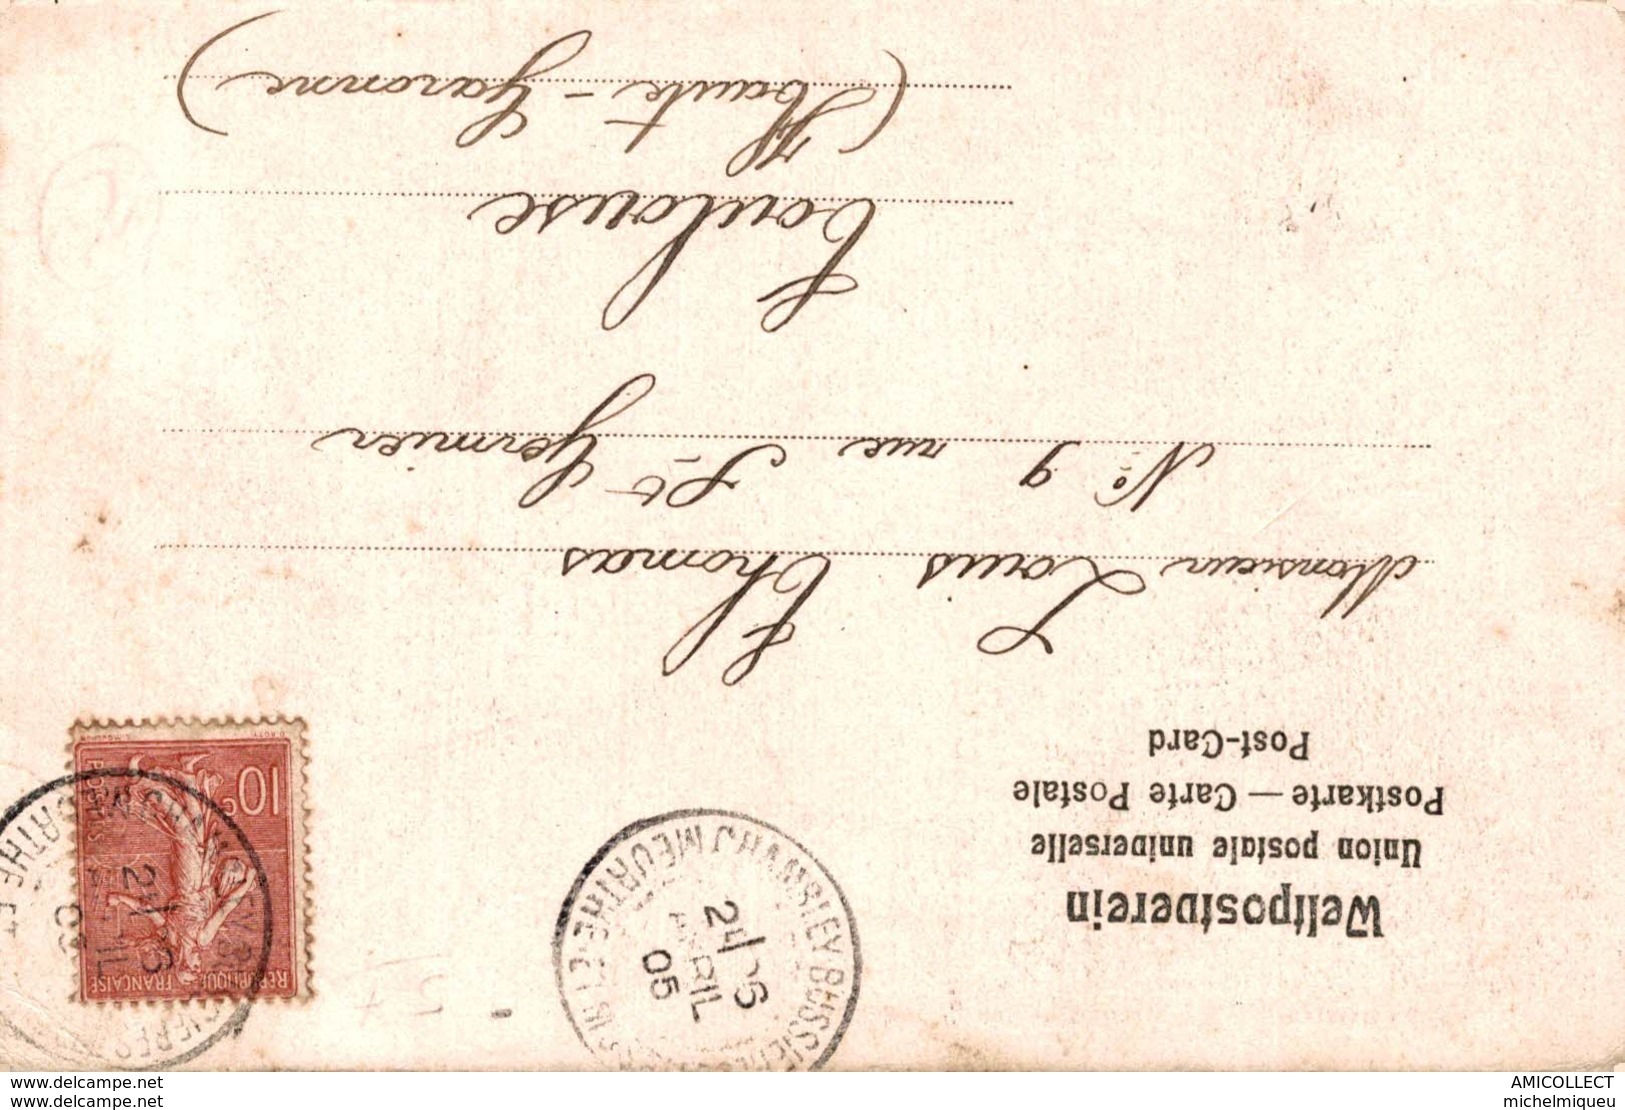 Weltpostverein
Union postale universelle
Postkarte — Carte Postale
Post-Card
Monsieur Louis Thomas
N° 9 rue St Germier
Toulouse
(Haute-Garonne)
REPUBLIQUE FRANÇAISE
10c
POSTES
BUSSIÈRES
MEURTHE ET
AVRIL
05
www.delcampe.net
www.delcampe.com
AMICOLLECT
michelmiqueu